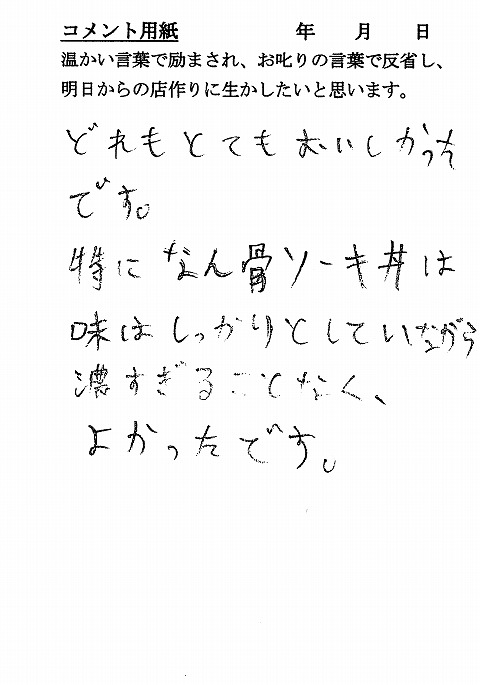 コメント用紙　　　年　月　日
温かい言葉で励まされ、お叱りの言葉で反省し、
明日からの店作りに生かしたいと思います。
どれもとてもおいしかった
です。
特になん骨ソーキ丼は
味はしっかりとしていながら
濃すぎることなく、
よかったです。